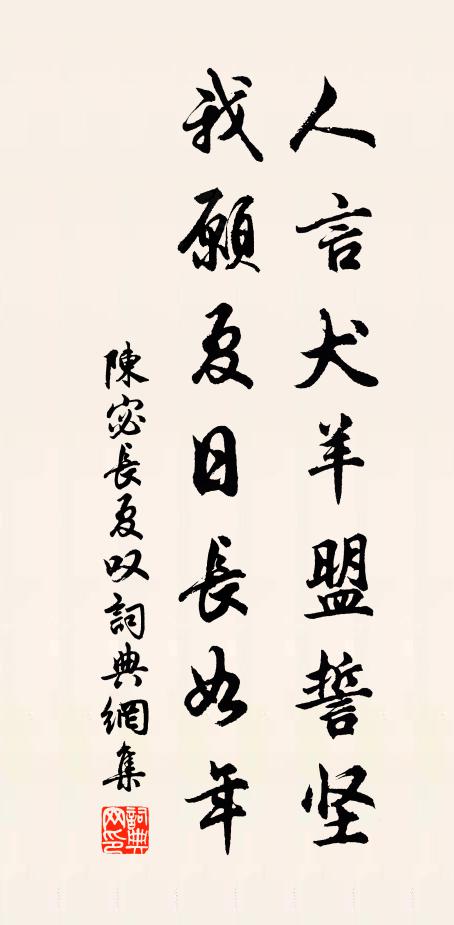 人言犬羊盟誓坚
我願夏日長如年
陳宓長夏叹詞典網集
詞典网印